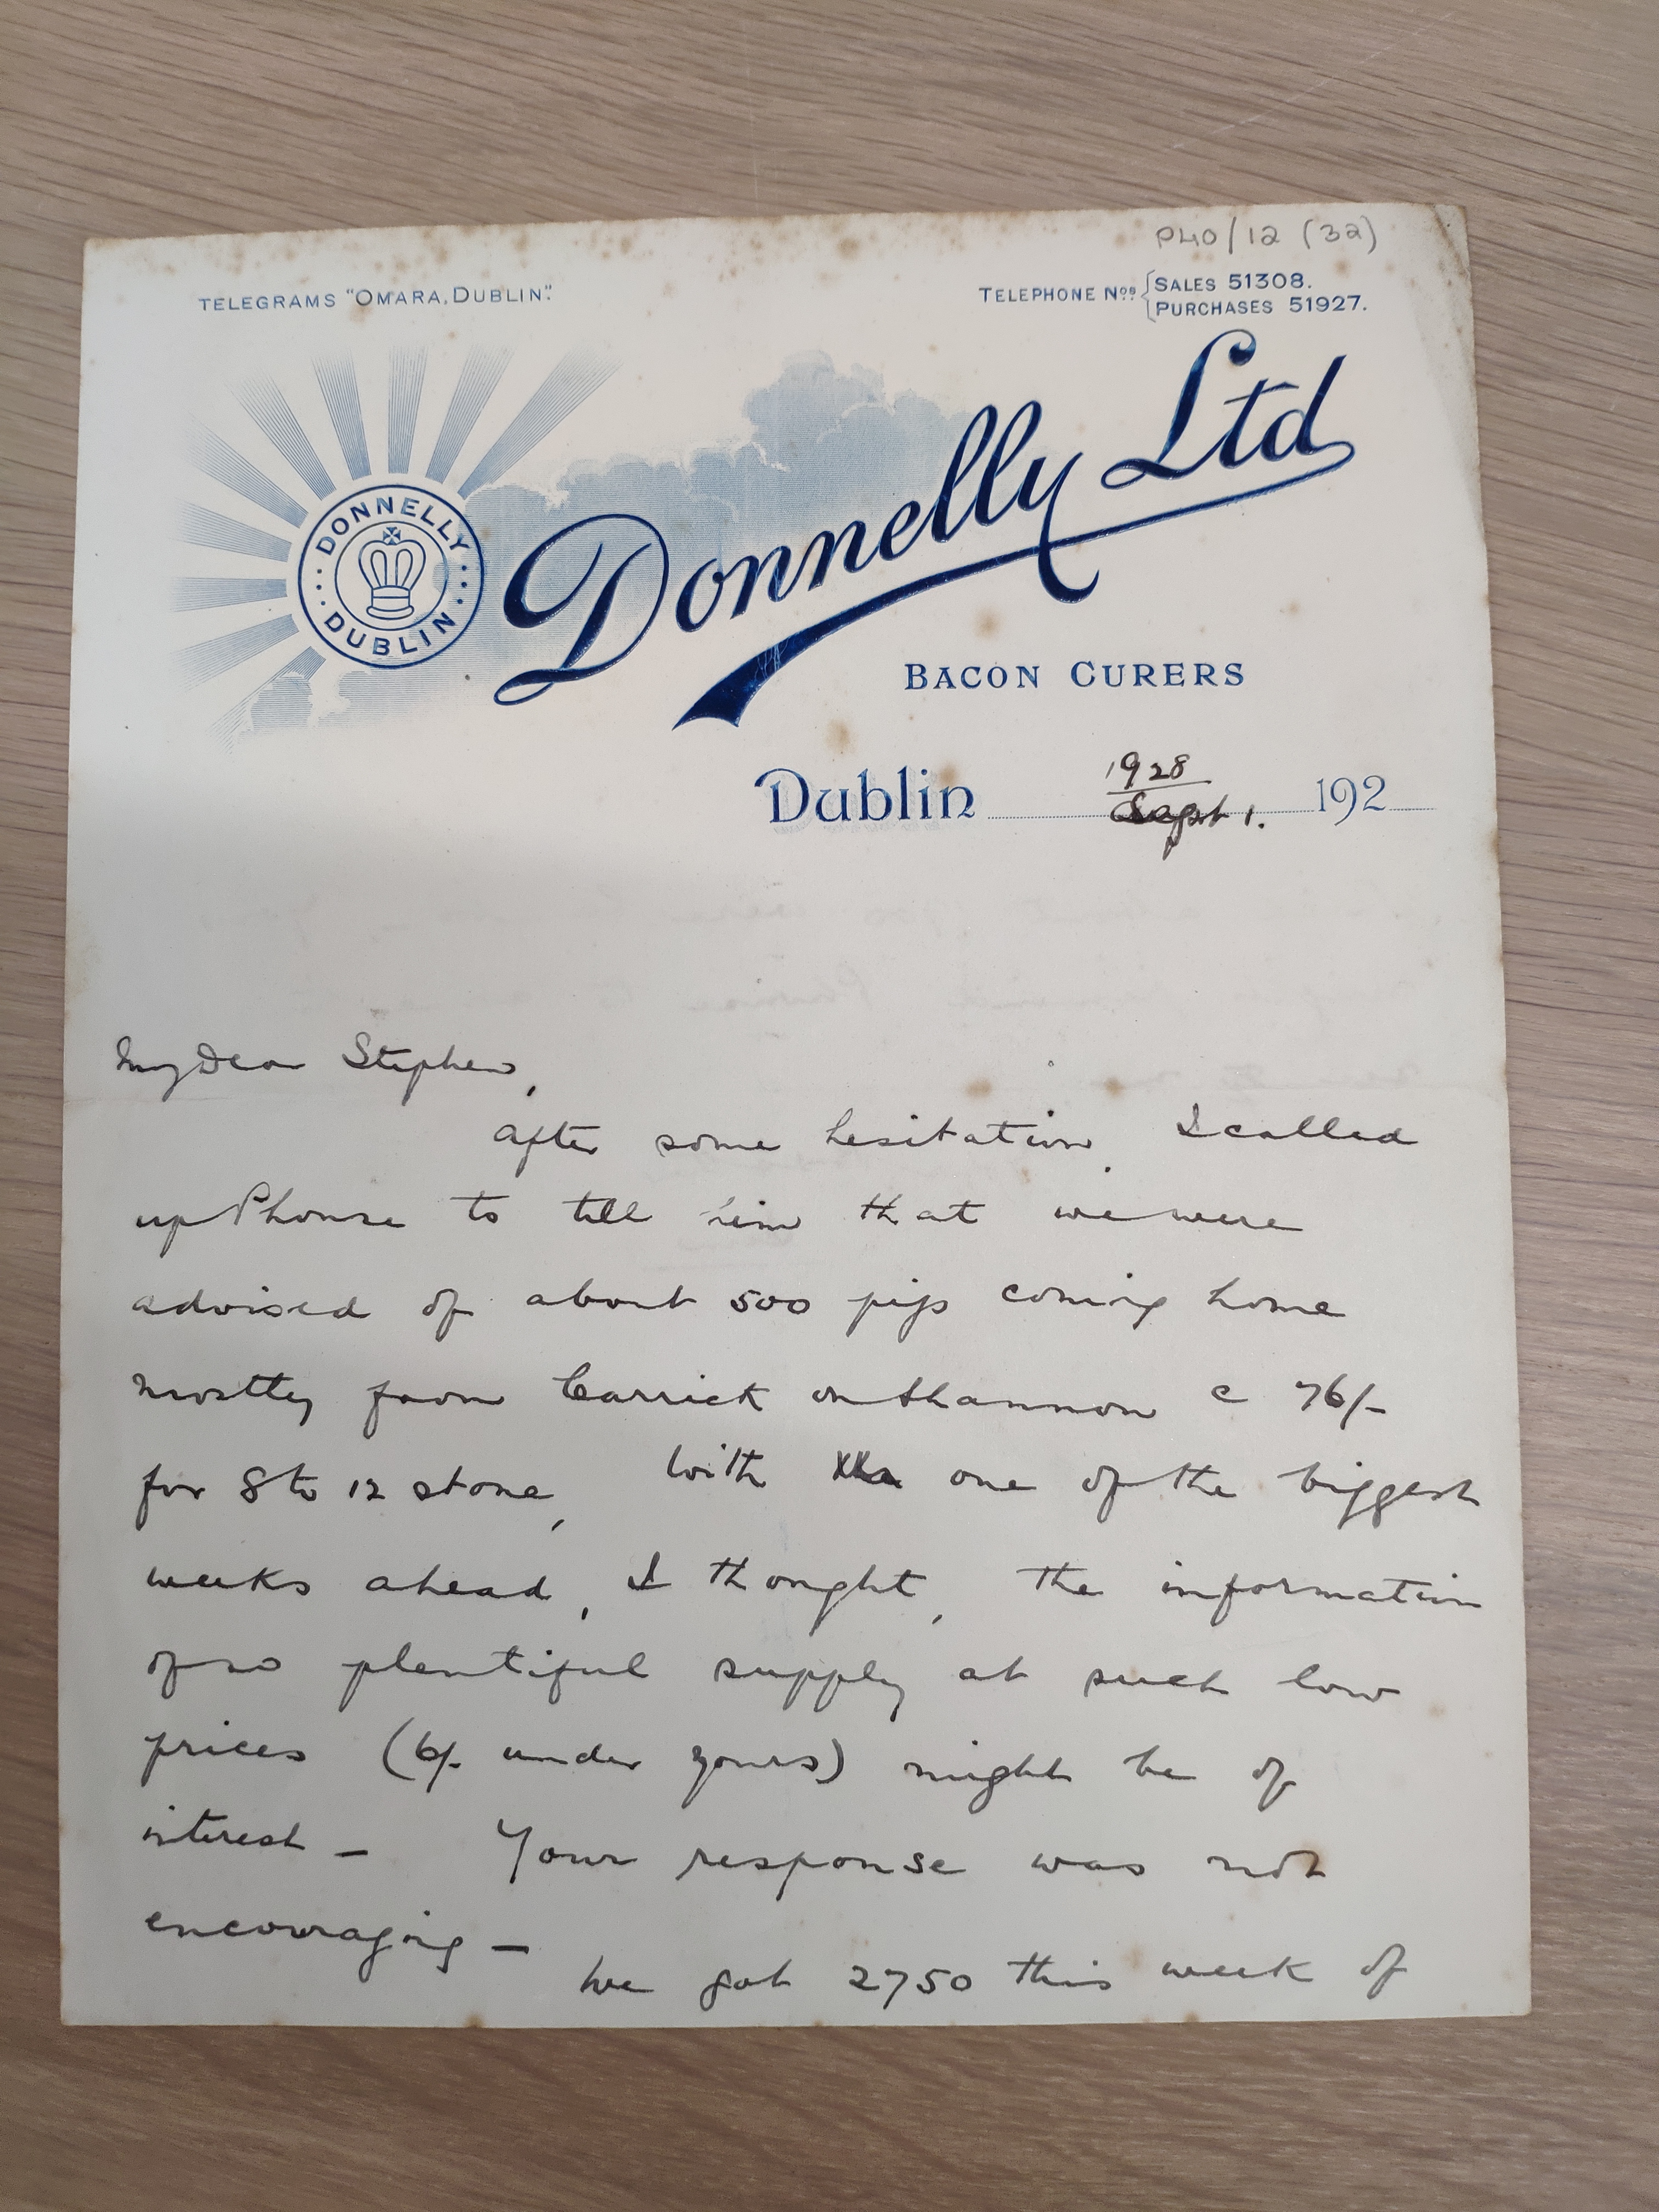 P40/12 (32)
TELEGRAMS "OMARA, DUBLIN".
TELEPHONE Nos. { SALES 51308.
PURCHASES 51927.
DONNELLY
DUBLIN
Donnelly Ltd
BACON CURERS
Dublin 1928 Sept 1. 192
My Dear Stephen,
After some hesitation, I called
up Phonse to tell him that we were
advised of about 500 pigs coming home
mostly from Carrick on Shannon c 76/-
for 8 to 12 stone, With one of the biggest
weeks ahead, I thought, the information
of so plentiful supply at such low
prices (6/- under yours) might be of
interest - Your response was not
encouraging -
We got 2750 this week of